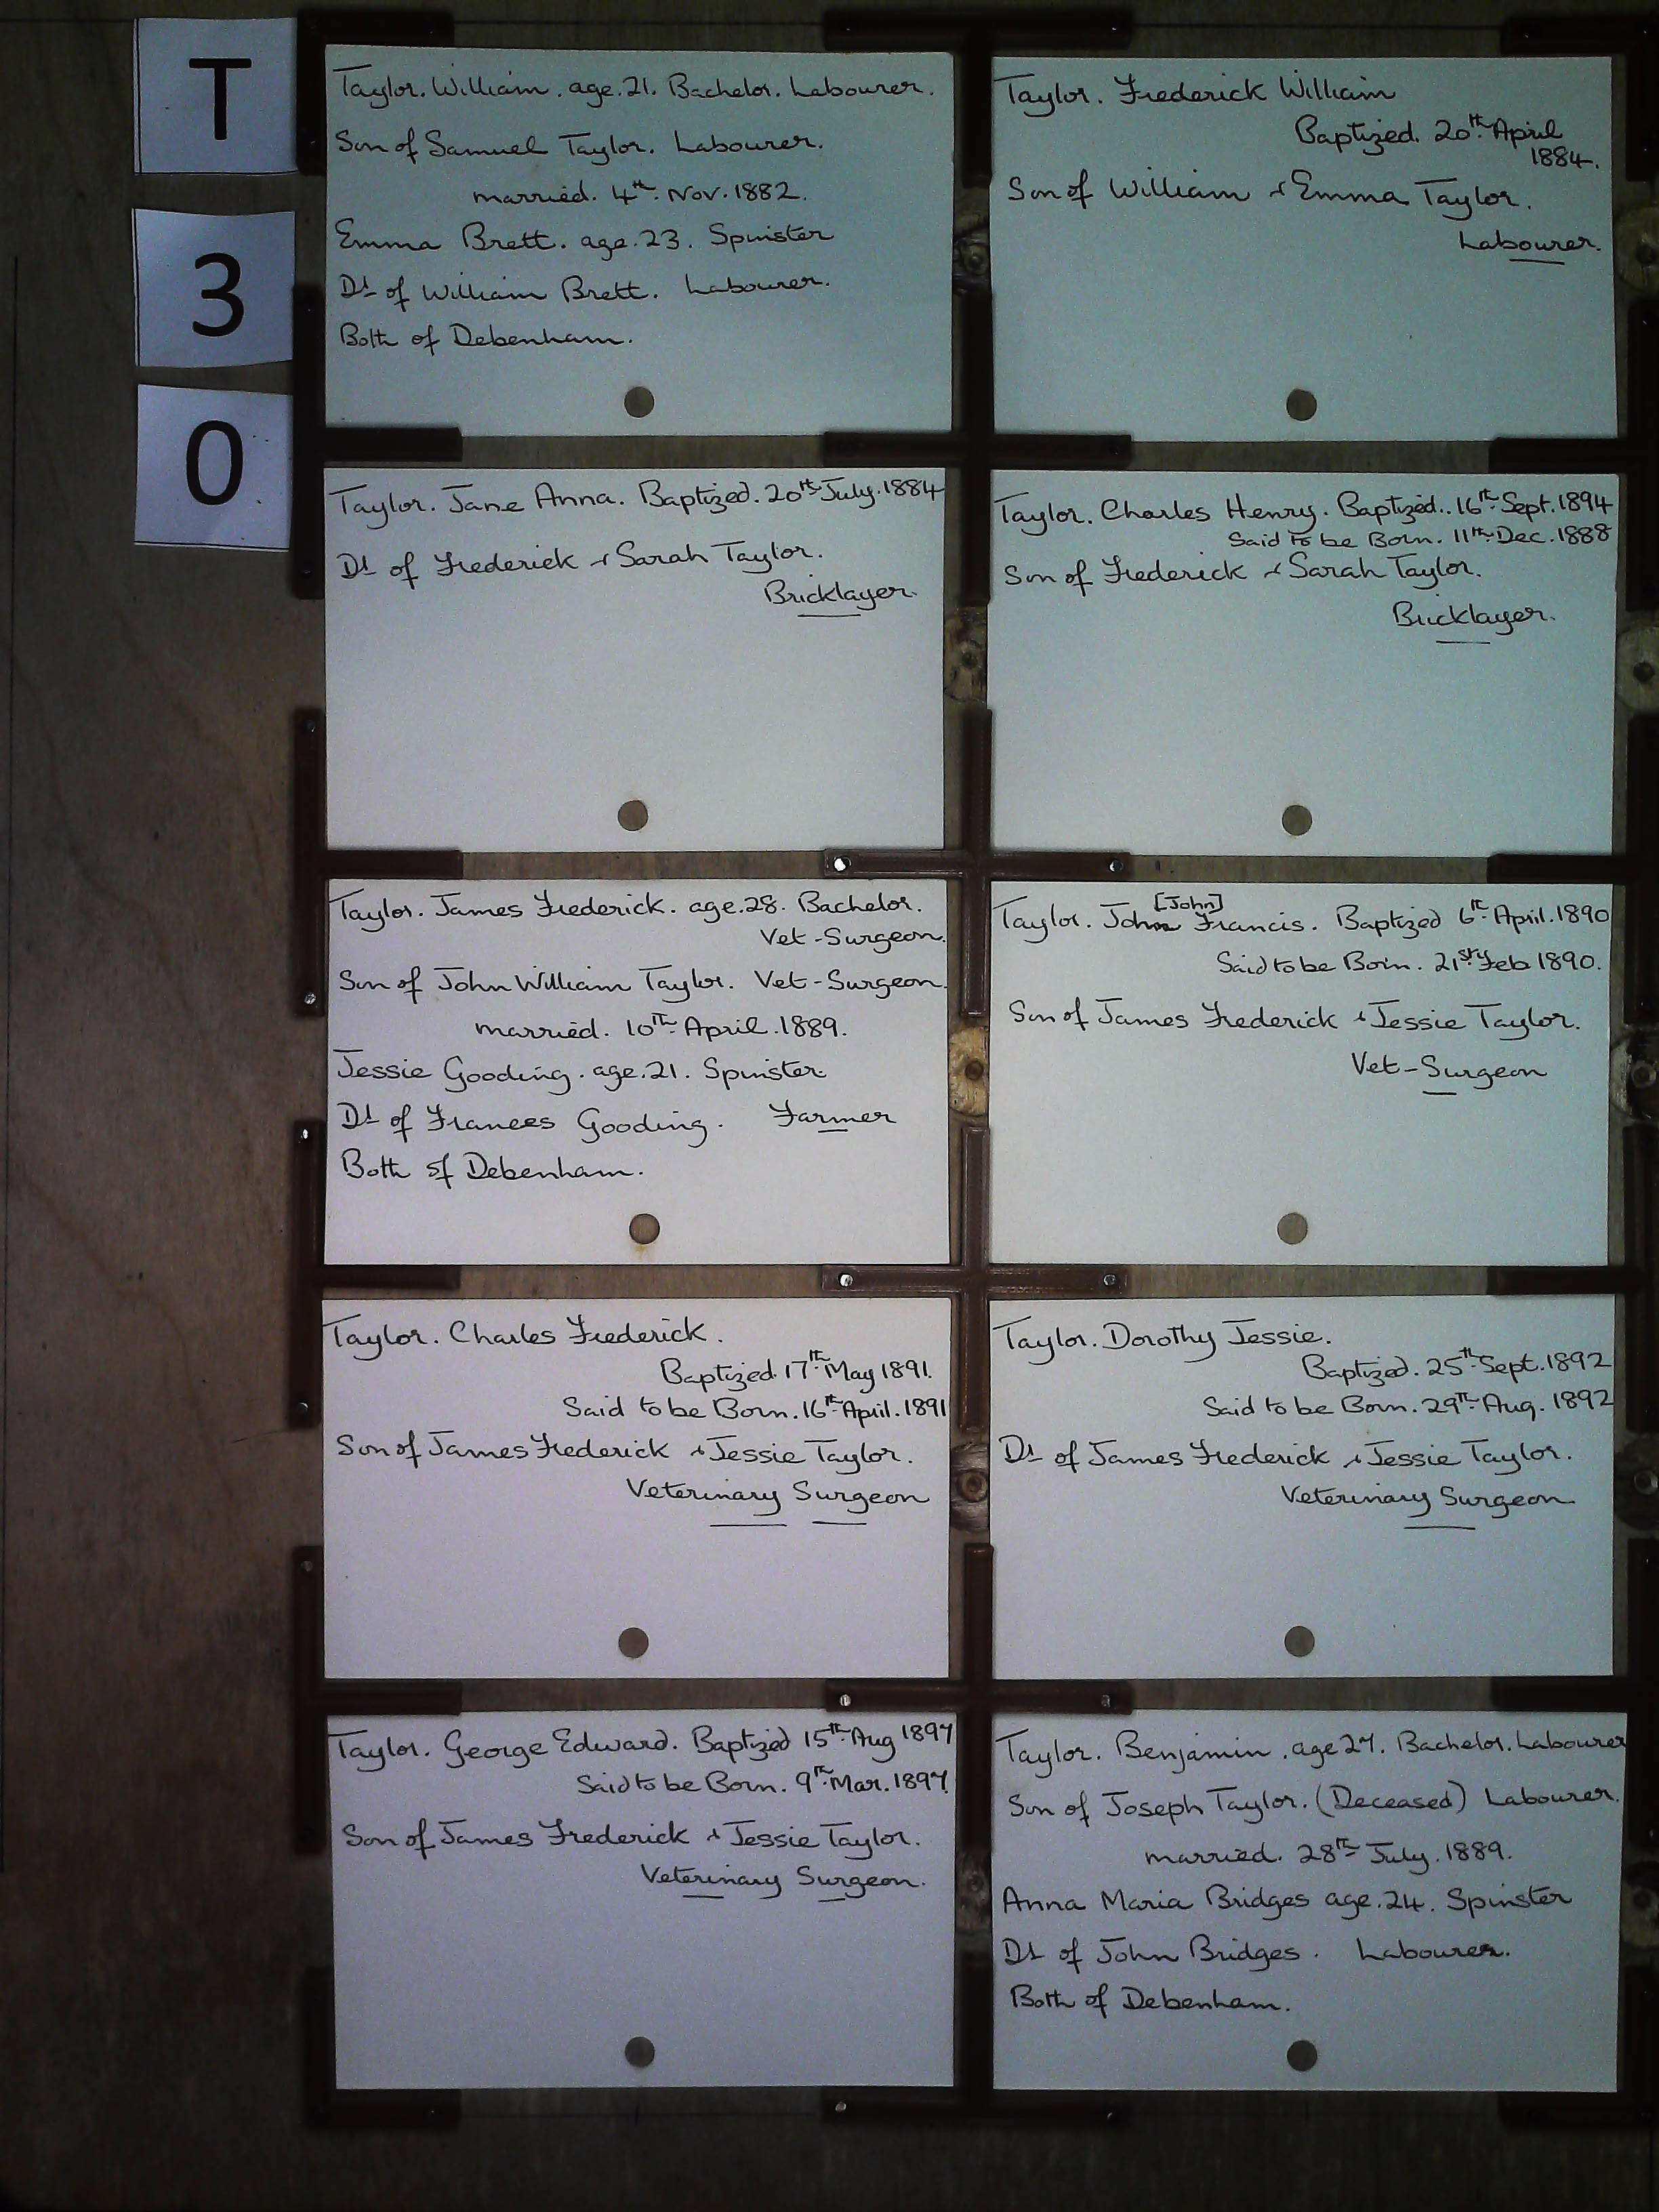 T
3
0
Taylor. William. age.21. Bachelor. Labourer.
Son of Samuel Taylor. Labourer.
married. 4th. Nov. 1882.
Emma Brett. age.23. Spinster
Dt of William Brett. Labourer.
Both of Debenham.
Taylor. Frederick William
Baptized. 20th April
1884.
Son of William & Emma Taylor.
Labourer.
Taylor. Jane Anna. Baptized. 20th July. 1884
Dt of Frederick & Sarah Taylor.
Bricklayer.
Taylor. Charles Henry. Baptized.. 16th Sept. 1894
Said to be Born. 11th Dec. 1888
Son of Frederick & Sarah Taylor.
Bricklayer.
Taylor. James Frederick. age.28. Bachelor.
Vet-Surgeon.
Son of John William Taylor. Vet-Surgeon.
married. 10th April. 1889.
Jessie Gooding. age.21. Spinster
Dt of Frances Gooding. Farmer
Both of Debenham.
[John]
Taylor. John Francis. Baptized 6th April. 1890
Said to be Born. 21st Feb 1890.
Son of James Frederick & Jessie Taylor.
Vet-Surgeon
Taylor. Charles Frederick.
Baptized. 17th May 1891.
Said to be Born. 16th April. 1891
Son of James Frederick & Jessie Taylor.
Veterinary Surgeon
Taylor. Dorothy Jessie.
Baptized. 25th Sept. 1892
Said to be Born. 29th Aug. 1892
Dt of James Frederick & Jessie Taylor.
Veterinary Surgeon
Taylor. George Edward. Baptized 15th Aug 1897
Said to be Born. 9th Mar. 1897.
Son of James Frederick & Jessie Taylor.
Veterinary Surgeon.
Taylor. Benjamin. age 27. Bachelor. Labourer
Son of Joseph Taylor. (Deceased) Labourer.
married. 28th July. 1889.
Anna Maria Bridges age.24. Spinster
Dt of John Bridges. Labourer.
Both of Debenham.